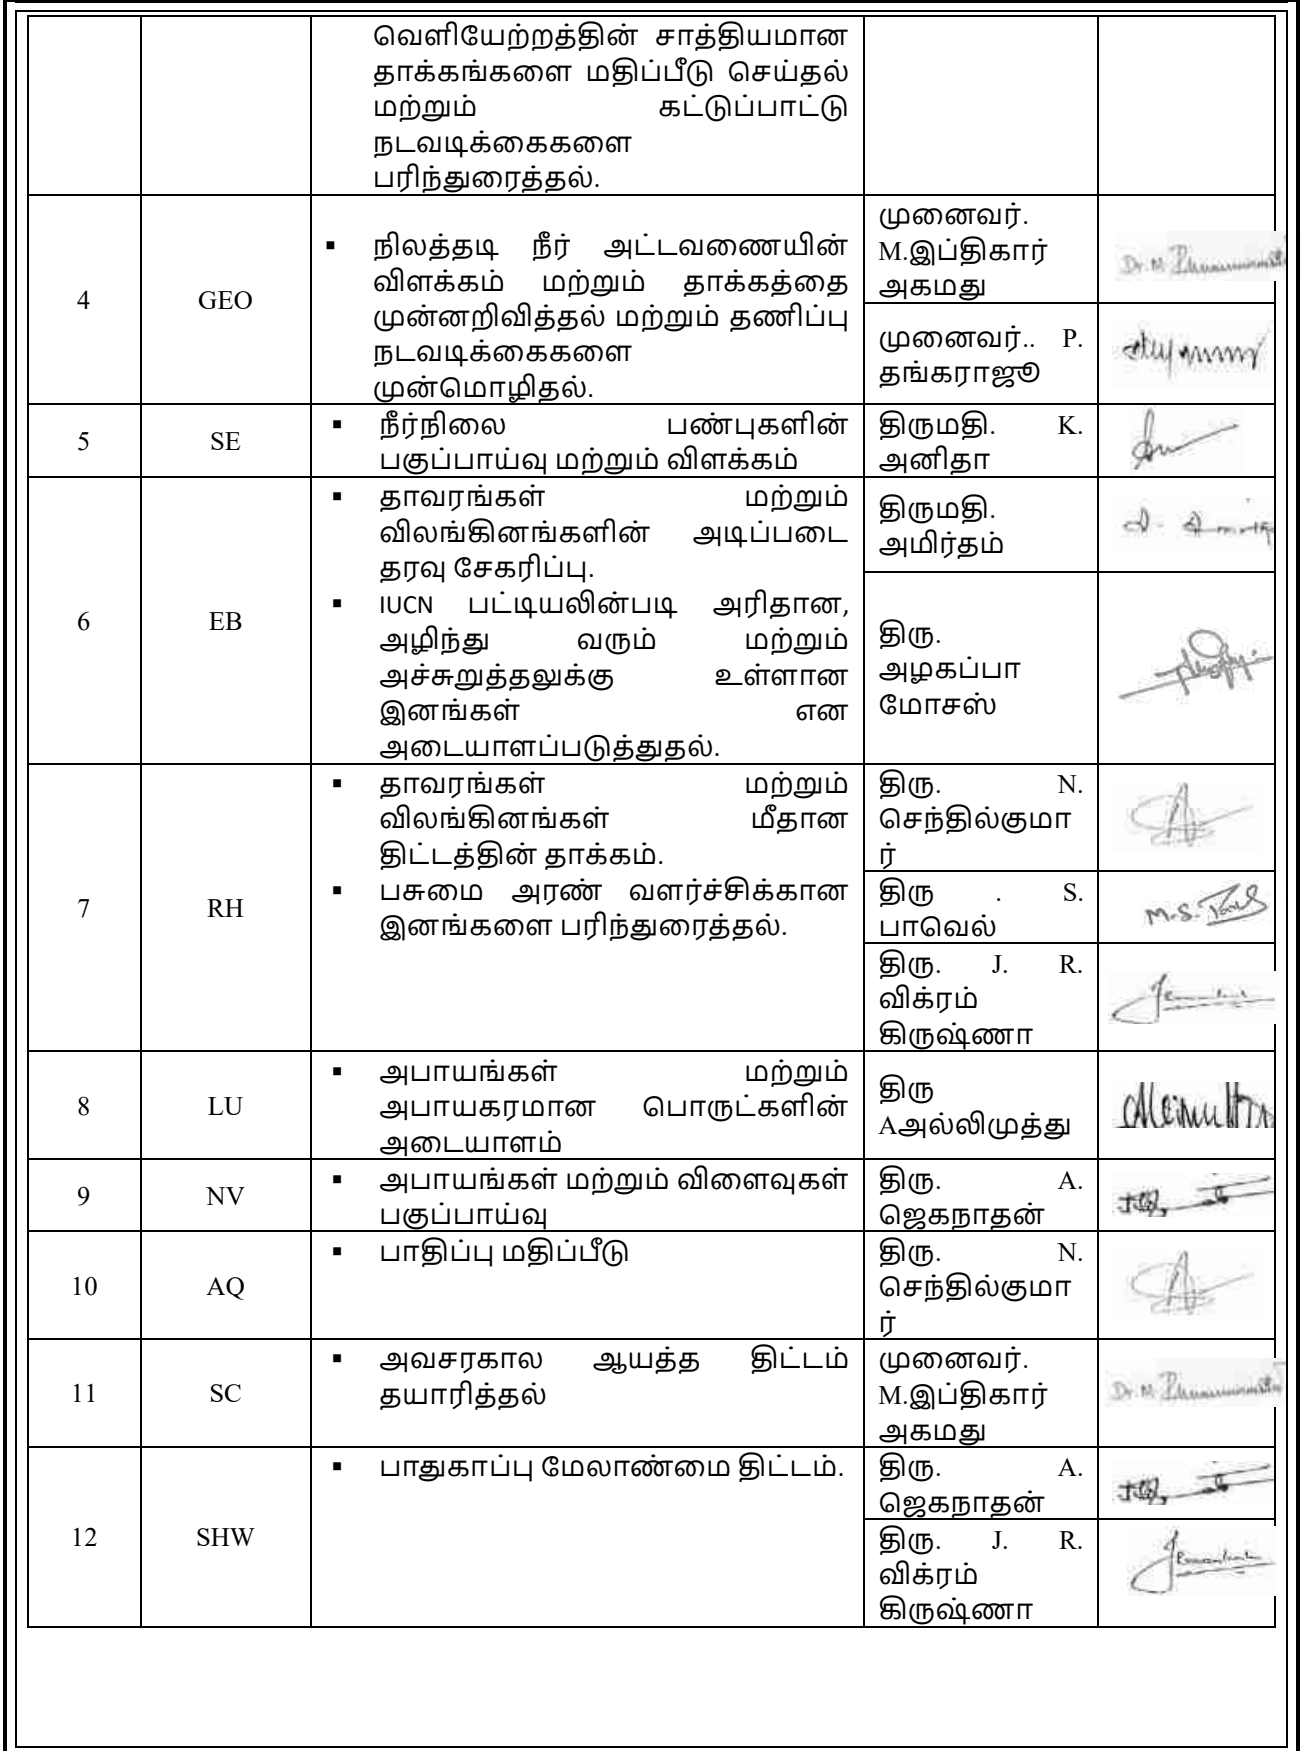 வெளியேற்றத்தின் சாத்தியமான
தாக்கங்களை மதிப்பீடு செய்தல்
மற்றும் கட்டுப்பாட்டு
நடவடிக்கைகளை
பரிந்துரைத்தல்.
4
GEO
▪ நிலத்தடி நீர் அட்டவணையின்
விளக்கம் மற்றும் தாக்கத்தை
முன்னறிவித்தல் மற்றும் தணிப்பு
நடவடிக்கைகளை
முன்மொழிதல்.
முனைவர்.
M.இப்திகார்
அகமது
Dr. M
முனைவர்.. P.
தங்கராஜூ
5
SE
▪ நீர்நிலை பண்புகளின்
பகுப்பாய்வு மற்றும் விளக்கம்
திருமதி. K.
அனிதா
6
EB
▪ தாவரங்கள் மற்றும்
விலங்கினங்களின் அடிப்படை
தரவு சேகரிப்பு.
▪ IUCN பட்டியலின்படி அரிதான,
அழிந்து வரும் மற்றும்
அச்சுறுத்தலுக்கு உள்ளான
இனங்கள் என
அடையாளப்படுத்துதல்.
திருமதி.
அமிர்தம்
திரு.
அழகப்பா
மோசஸ்
7
RH
▪ தாவரங்கள் மற்றும்
விலங்கினங்கள் மீதான
திட்டத்தின் தாக்கம்.
▪ பசுமை அரண் வளர்ச்சிக்கான
இனங்களை பரிந்துரைத்தல்.
திரு. N.
செந்தில்குமா
ர்
திரு . S.
பாவெல்
M.S.
திரு. J. R.
விக்ரம்
கிருஷ்ணா
8
LU
▪ அபாயங்கள் மற்றும்
அபாயகரமான பொருட்களின்
அடையாளம்
திரு
Aஅல்லிமுத்து
9
NV
▪ அபாயங்கள் மற்றும் விளைவுகள்
பகுப்பாய்வு
திரு. A.
ஜெகநாதன்
10
AQ
▪ பாதிப்பு மதிப்பீடு
திரு. N.
செந்தில்குமா
ர்
11
SC
▪ அவசரகால ஆயத்த திட்டம்
தயாரித்தல்
முனைவர்.
M.இப்திகார்
அகமது
Dr. M
12
SHW
▪ பாதுகாப்பு மேலாண்மை திட்டம்.
திரு. A.
ஜெகநாதன்
திரு. J. R.
விக்ரம்
கிருஷ்ணா